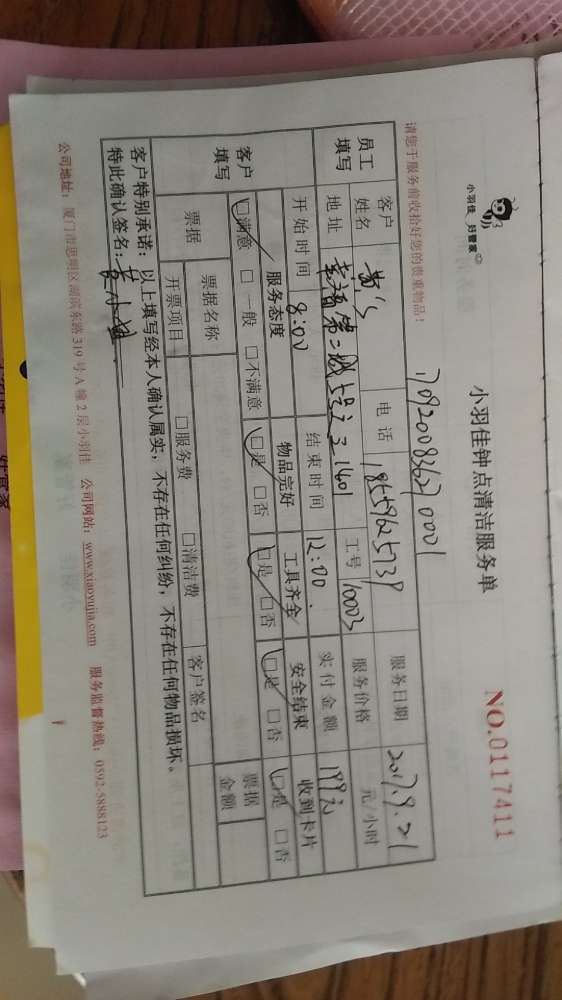 小羽佳 好管家
小羽佳钟点清洁服务单
NO.0117411
请您于服务前收拾好您的贵重物品！
1709200836270001
员工填写 客户姓名 电话 18559625739 服务日期 2017.9.21
地址 幸福第二城5号之三1401 工号 10003 服务价格 元/小时
客户填写 开始时间 8:00 结束时间 12:00. 实付金额 199元
服务态度 物品完好 工具齐全 安全结束 收到卡片
□满意 □一般 □不满意 □是 □否 □是 □否 □是 □否 □是 □否
票据 票据名称 客户签名 票据金额
开票项目 □服务费 □清洁费
客户特别承诺：以上填写经本人确认属实，不存在任何纠纷，不存在任何物品损坏。
特此确认签名：
公司地址：厦门市思明区湖滨东路319号A幢2层小羽佳 公司网站：www.xiaoyujia.com 服务监督热线：0592-5888123